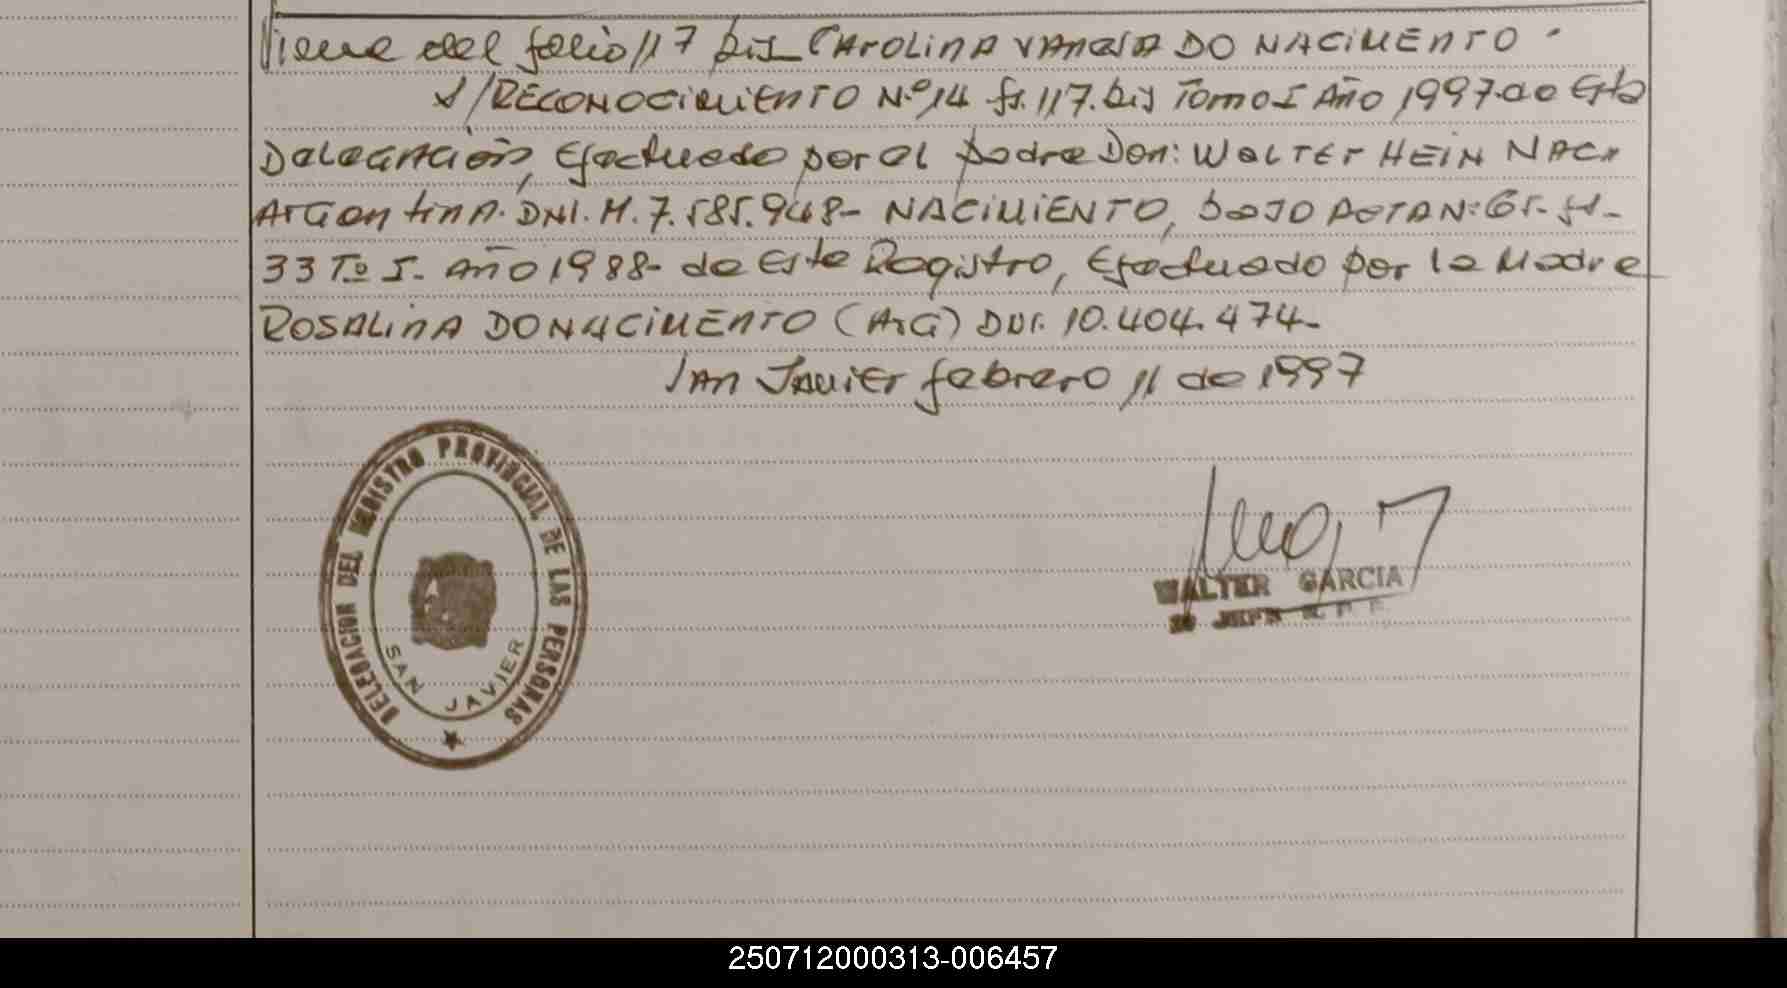 Viene del folio 117 bis CAROLINA VANESA DO NACIMENTO.
s/RECONOCIMIENTO N.º 14 fs. 117. bis Tomo I Año 1997 de Esta
Delegación, Efectuado por el padre Don: WALTER HEIN NAC.
Argentina. DNI. M. 7.585.948- NACIMIENTO, bajo ACTA N: 65- fs-
33 Tº I- Año 1988- de Este Registro, Efectuado por la Madre
ROSALINA DO NACIMENTO (ArG) DNI. 10.404.474-
San Javier febrero 11 de 1997
DELEGACION DEL REGISTRO PROVINCIAL DE LAS PERSONAS
SAN JAVIER
WALTER GARCIA
JEFE R. P. P.
250712000313-006457